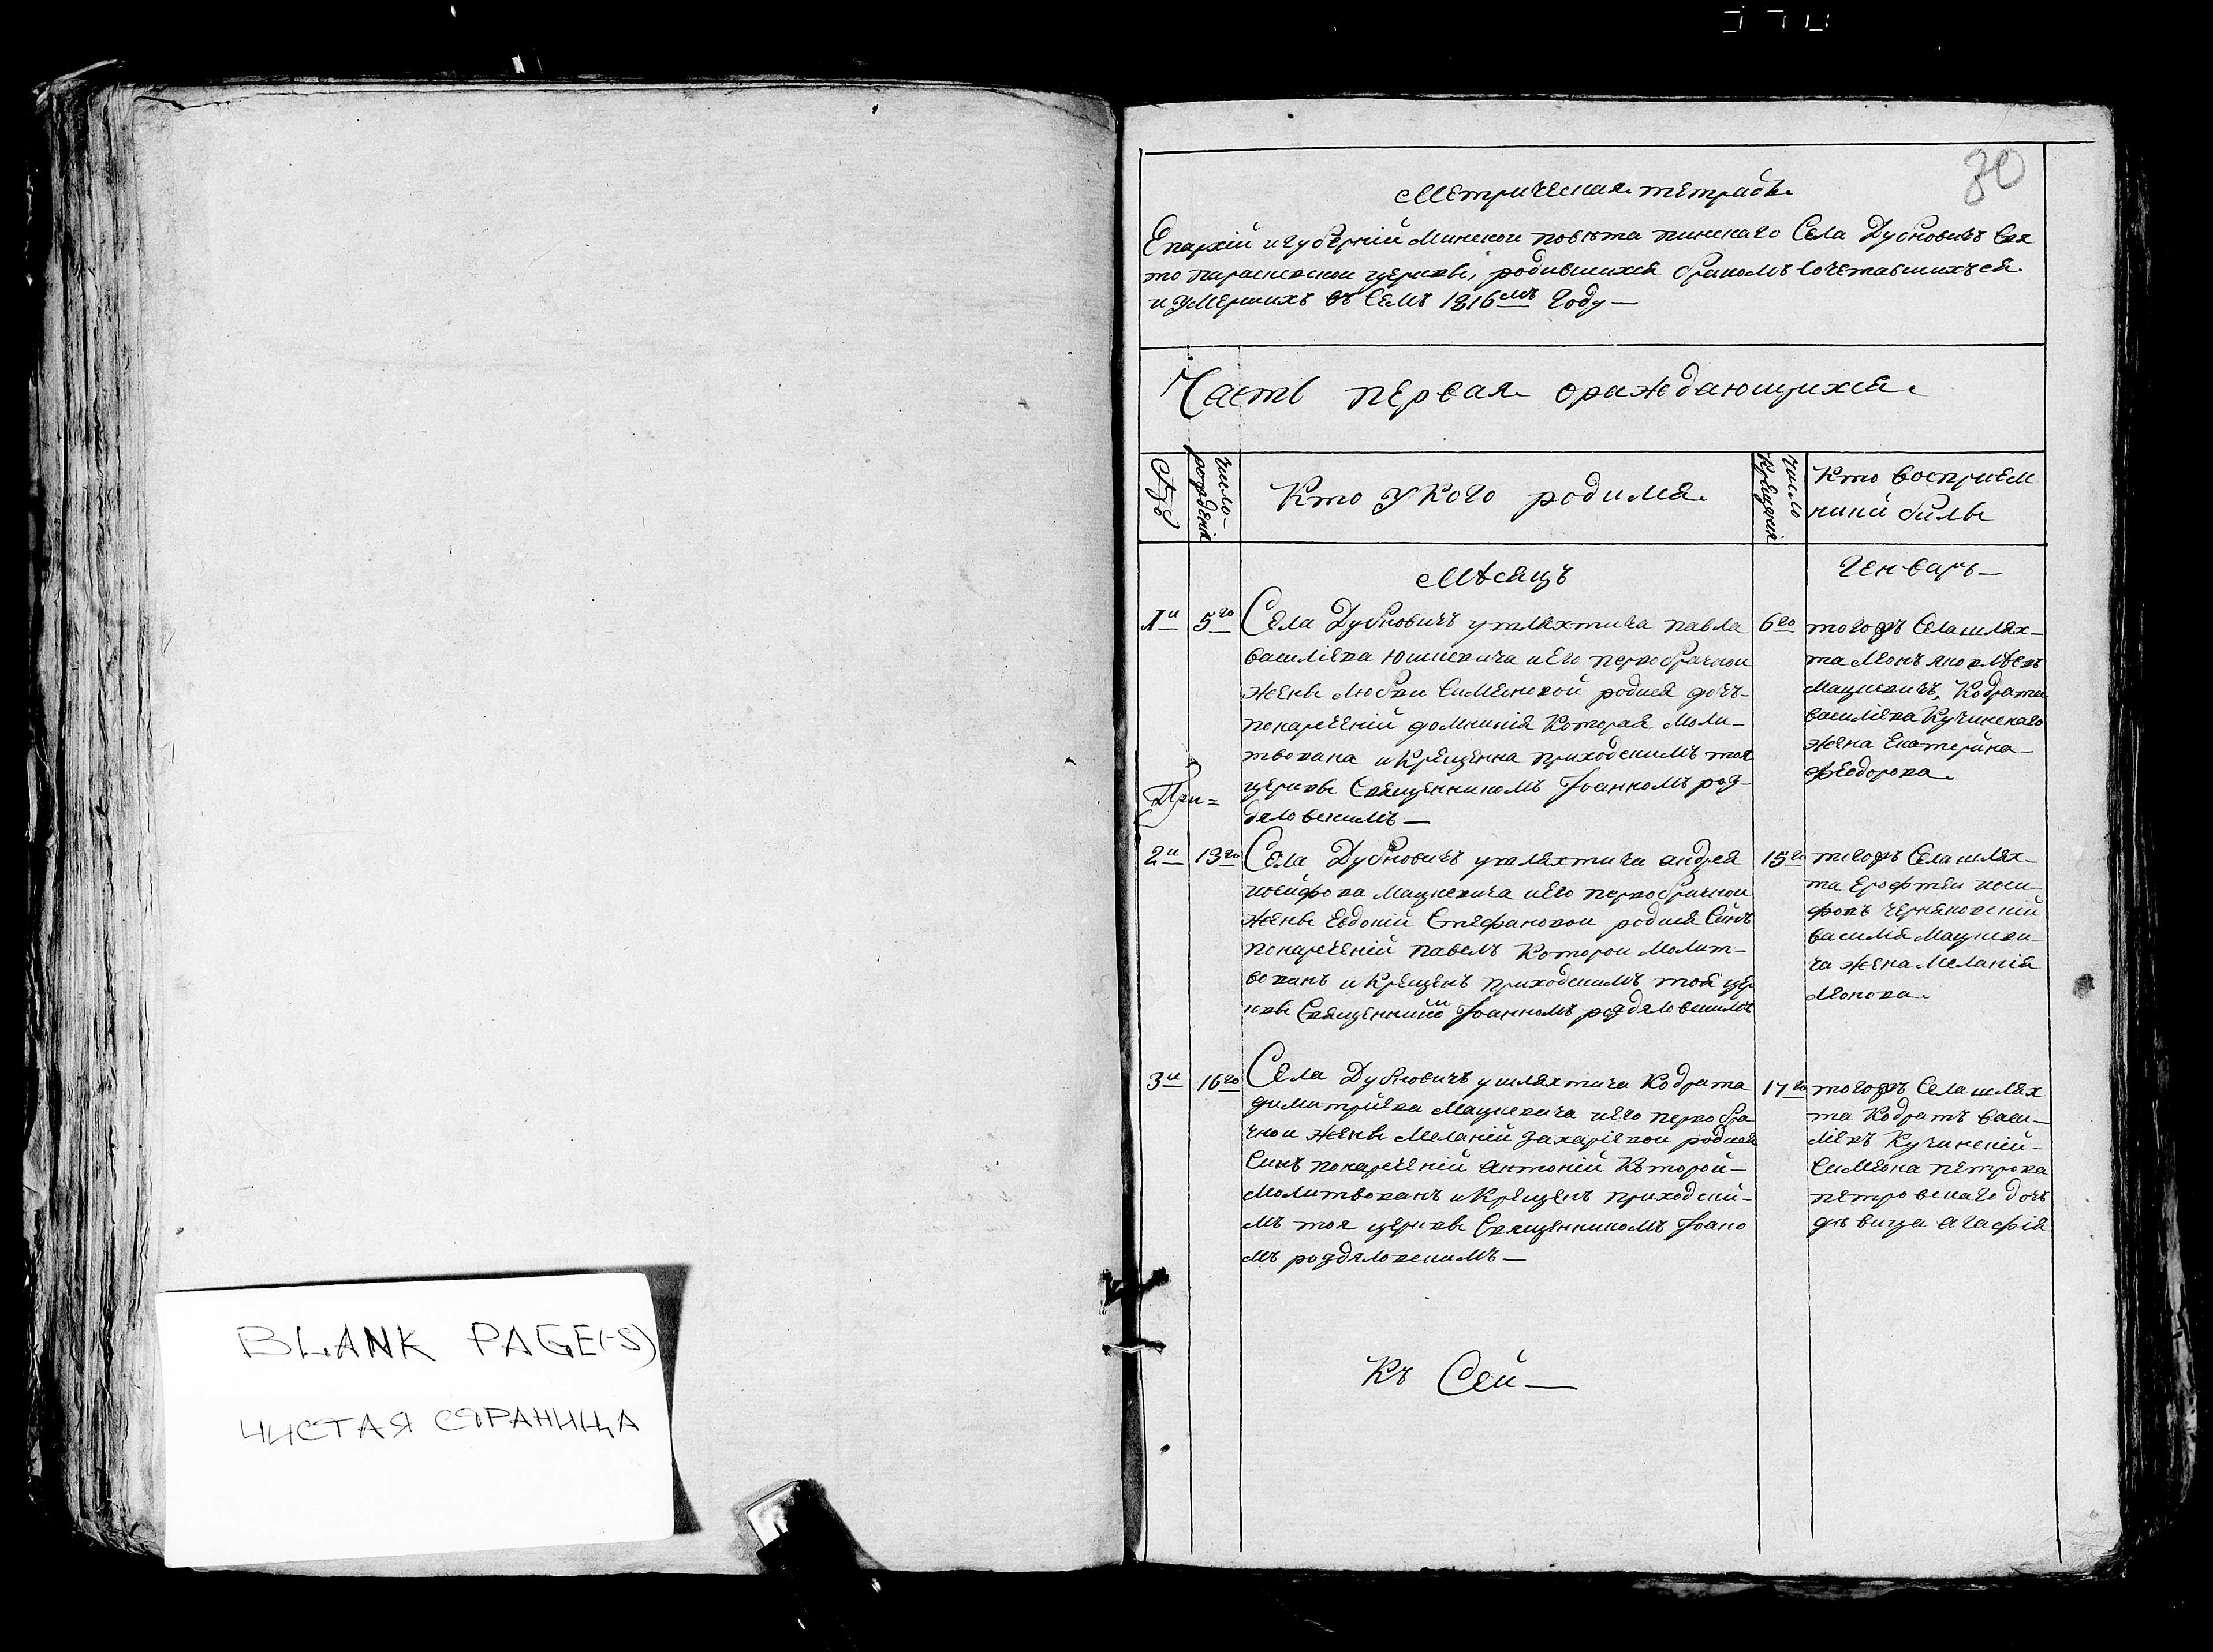 BLANK PAGE(-S)
ЧИСТАЯ СТРАНИЦА
30
Метрическая тетрадь
Епархіи и губерніи Минской повѣта пинскаго Села Дубновичъ Свя
то параскевской церкви, родившихся бракомъ сочетавшихъся
и умершихъ въ семъ 1816мъ году —
Часть первая о раждающихся
Число рожденія
Кто у кого родился
Число крещенія
Кто восприем
ники были
Мѣсяцъ
Генварь —
1и
5го
Села Дубновичъ у шляхтича павла
василіева Юшкевича и его первобрачной
жены Любви Симеоновой родися дочъ
понареченіи домникія Которая Моли-
твована и Крещенна приходскимъ тоя
церкви Священникомъ Іоанномъ роз-
дяловскимъ —
6го
тогожъ Села шлях-
та Леонъ яковлевъ
Мацкевичъ, Кодрата
василіева Кучинскаго
жена Екатерина
феодорова
При=
2и
13го
Села Дубновичъ у шляхтича андрея
иосифова Мацкевича и его первобрачной
жены Евдокіи Стефановой родися Синъ
понареченіи павелъ Которой Молит-
вованъ и Крещенъ приходскимъ тоя цер
кви Священнико Іоанномъ роздяловскимъ
15го
тогожъ Села шлях-
та Ерофтеи иоси-
фовъ Черняковскій
василія Мацкеви-
ча жена Меланія
Леонова
3и
16го
Села Дубновичъ у шляхтича Кодрата
димитріева Мацкевича и его первобра
чной жены Меланіи Захаріевой родися
Синъ понареченіи антоній Которой —
Молитвованъ и Крещенъ приходски-
мъ тоя церкви Священникомъ Іоано
мъ роздяловскимъ —
17го
тогожъ Села шлях
та Кодратъ васи-
ліевъ Кучинскій —
Симеона петрова
петровскаго дочъ
дѣвица агафія
Къ Сей —